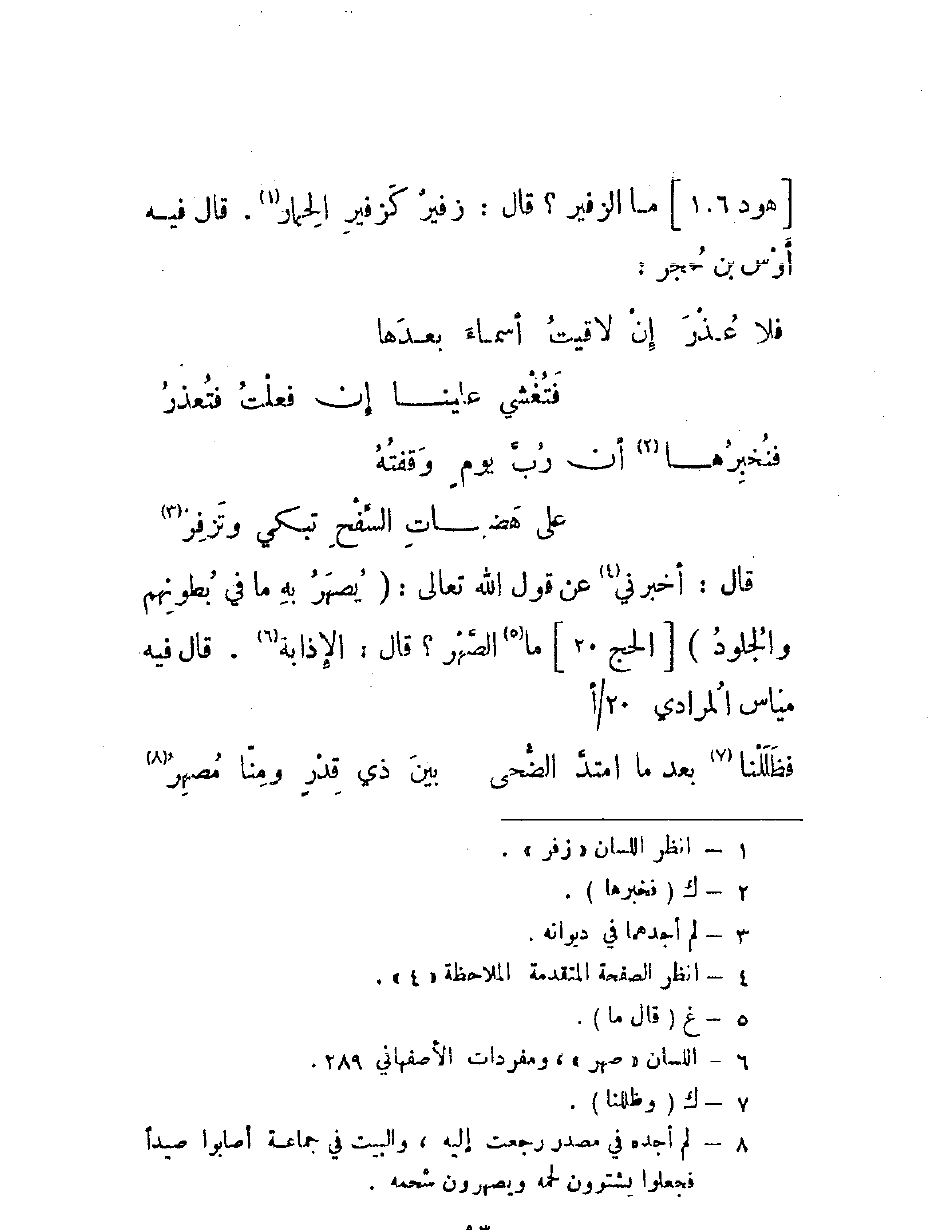 [هود ١٠٦] ما الزفير ؟ قال : زفيرٌ كَزفيرِ الحِمار(١) . قال فيه
أَوْس بن حُجر :
فلا عُذْرَ إنْ لاقيتُ أسماءَ بعدَها
فَتُغْشي علينا إن فعلْتُ فتُعذرُ
فنُخبِرُها(٢) أن رُبَّ يومٍ وَقفتُهُ
على هَضباتِ السَّفْحِ تبكي وتَزفِر(٣)
قال : أخبرني(٤) عن قول الله تعالى : ( يُصهَرُ بهِ ما في بُطونِهم
والجُلودُ ) [الحج ٢٠] ما(٥) الصَّهْر ؟ قال : الإذابة(٦) . قال فيه
مياس المُرادي ٢٠/أ
فظَلَلْنا(٧) بعد ما امتدَّ الضُّحى بينَ ذي قِدْرٍ ومِنّا مُصهِرُ(٨)
١ – انظر اللسان «زفر» .
٢ – ك ( نخبرها ) .
٣ – لم أجدهما في ديوانه .
٤ – انظر الصفحة المتقدمة الملاحظة «٤» .
٥ – غ ( قال ما ) .
٦ – اللسان «صهر» ، ومفردات الأصفهاني ٢٨٩ .
٧ – ك ( وظللنا ) .
٨ – لم أجده في مصدر رجعت إليه ، والبيت في جماعة أصابوا صيداً
فجعلوا يشتوون لحمه ويصهرون شحمه .